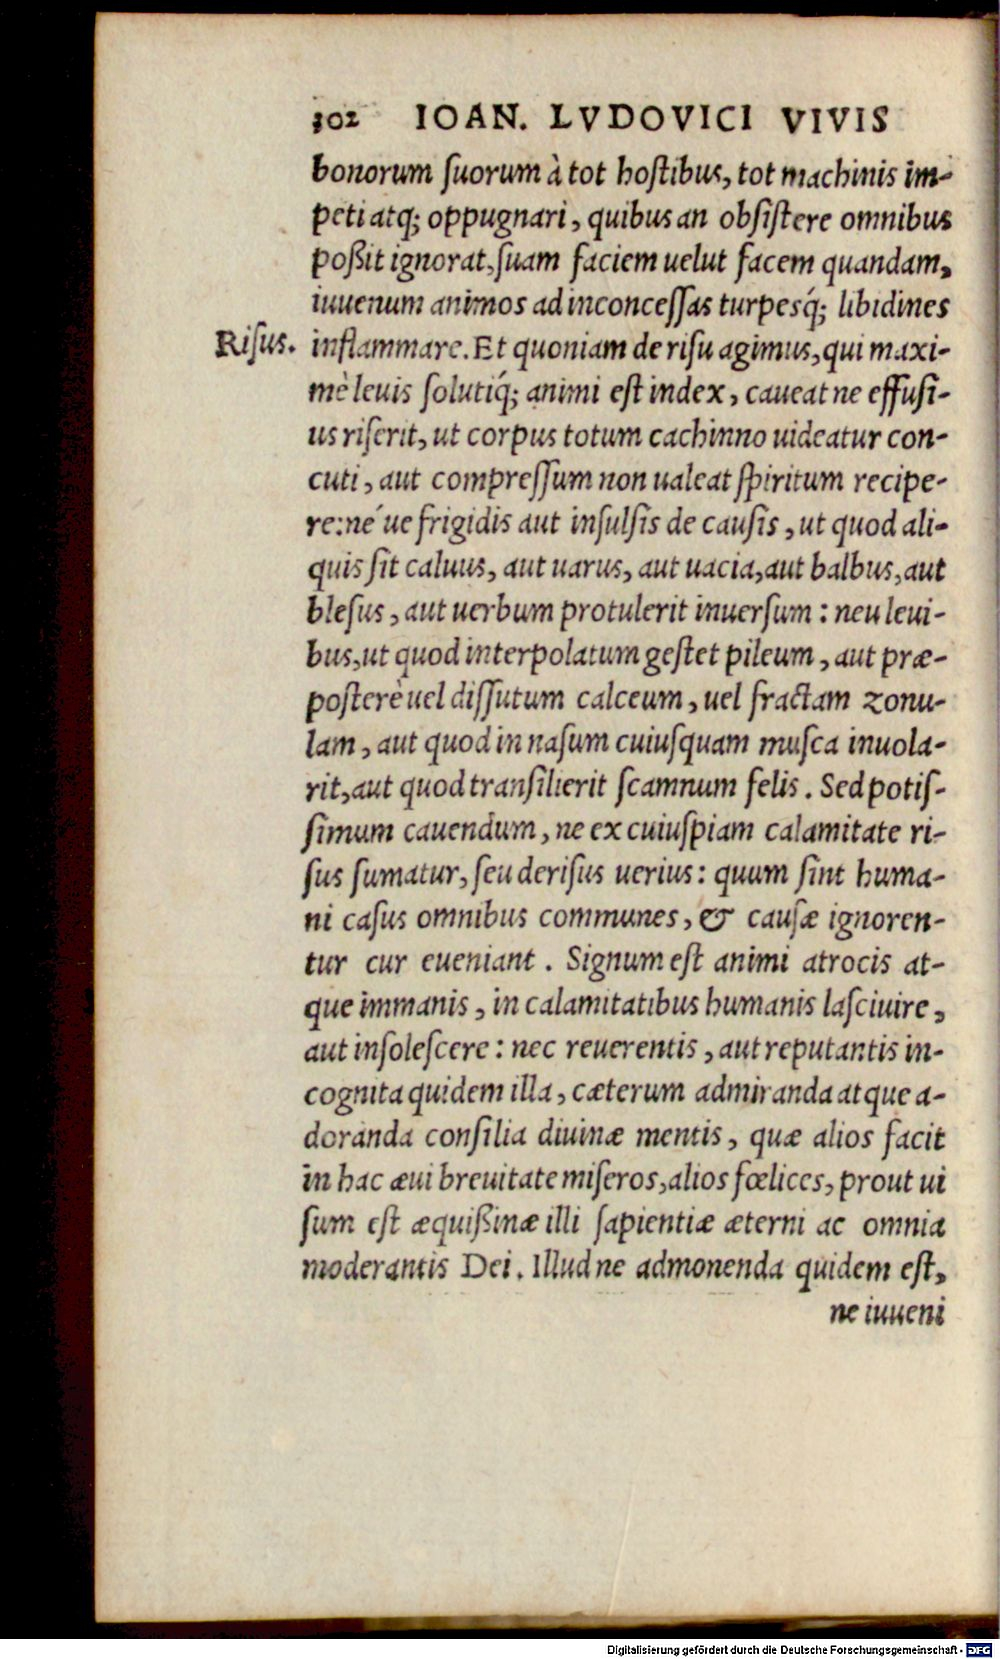 102 IOAN. LVDOVICI VIVIS
bonorum suorum à tot hostibus, tot machinis im-
peti atq; oppugnari, quibus an obsistere omnibus
poßit ignorat, suam faciem uelut facem quandam,
iuuenum animos ad inconcessas turpesq́; libidines
Risus. inflammare. Et quoniam de risu agimus, qui maxi-
mè leuis solutiq́; animi est index, caueat ne effusi-
us riserit, ut corpus totum cachinno uideatur con-
cuti, aut compressum non ualeat spiritum recipe-
re: né ue frigidis aut insulsis de causis, ut quod ali-
quis sit caluus, aut uarus, aut uacia, aut balbus, aut
blesus, aut uerbum protulerit inuersum: neu leui-
bus, ut quod interpolatum gestet pileum, aut præ-
posterè uel dissutum calceum, uel fractam zonu-
lam, aut quod in nasum cuiusquam musca inuola-
rit, aut quod transilierit scamnum felis. Sed potis-
simum cauendum, ne ex cuiuspiam calamitate ri-
sus sumatur, seu derisus uerius: quum sint huma-
ni casus omnibus communes, & causæ ignoren-
tur cur eueniant. Signum est animi atrocis at-
que immanis, in calamitatibus humanis lasciuire,
aut insolescere: nec reuerentis, aut reputantis in-
cognita quidem illa, cæterum admiranda atque a-
doranda consilia diuinæ mentis, quæ alios facit
in hac æui breuitate miseros, alios fœlices, prout ui
sum est æquißinæ illi sapientiæ æterni ac omnia
moderantis Dei. Illud ne admonenda quidem est,
ne iuueni
Digitalisierung gefördert durch die Deutsche Forschungsgemeinschaft - DFG